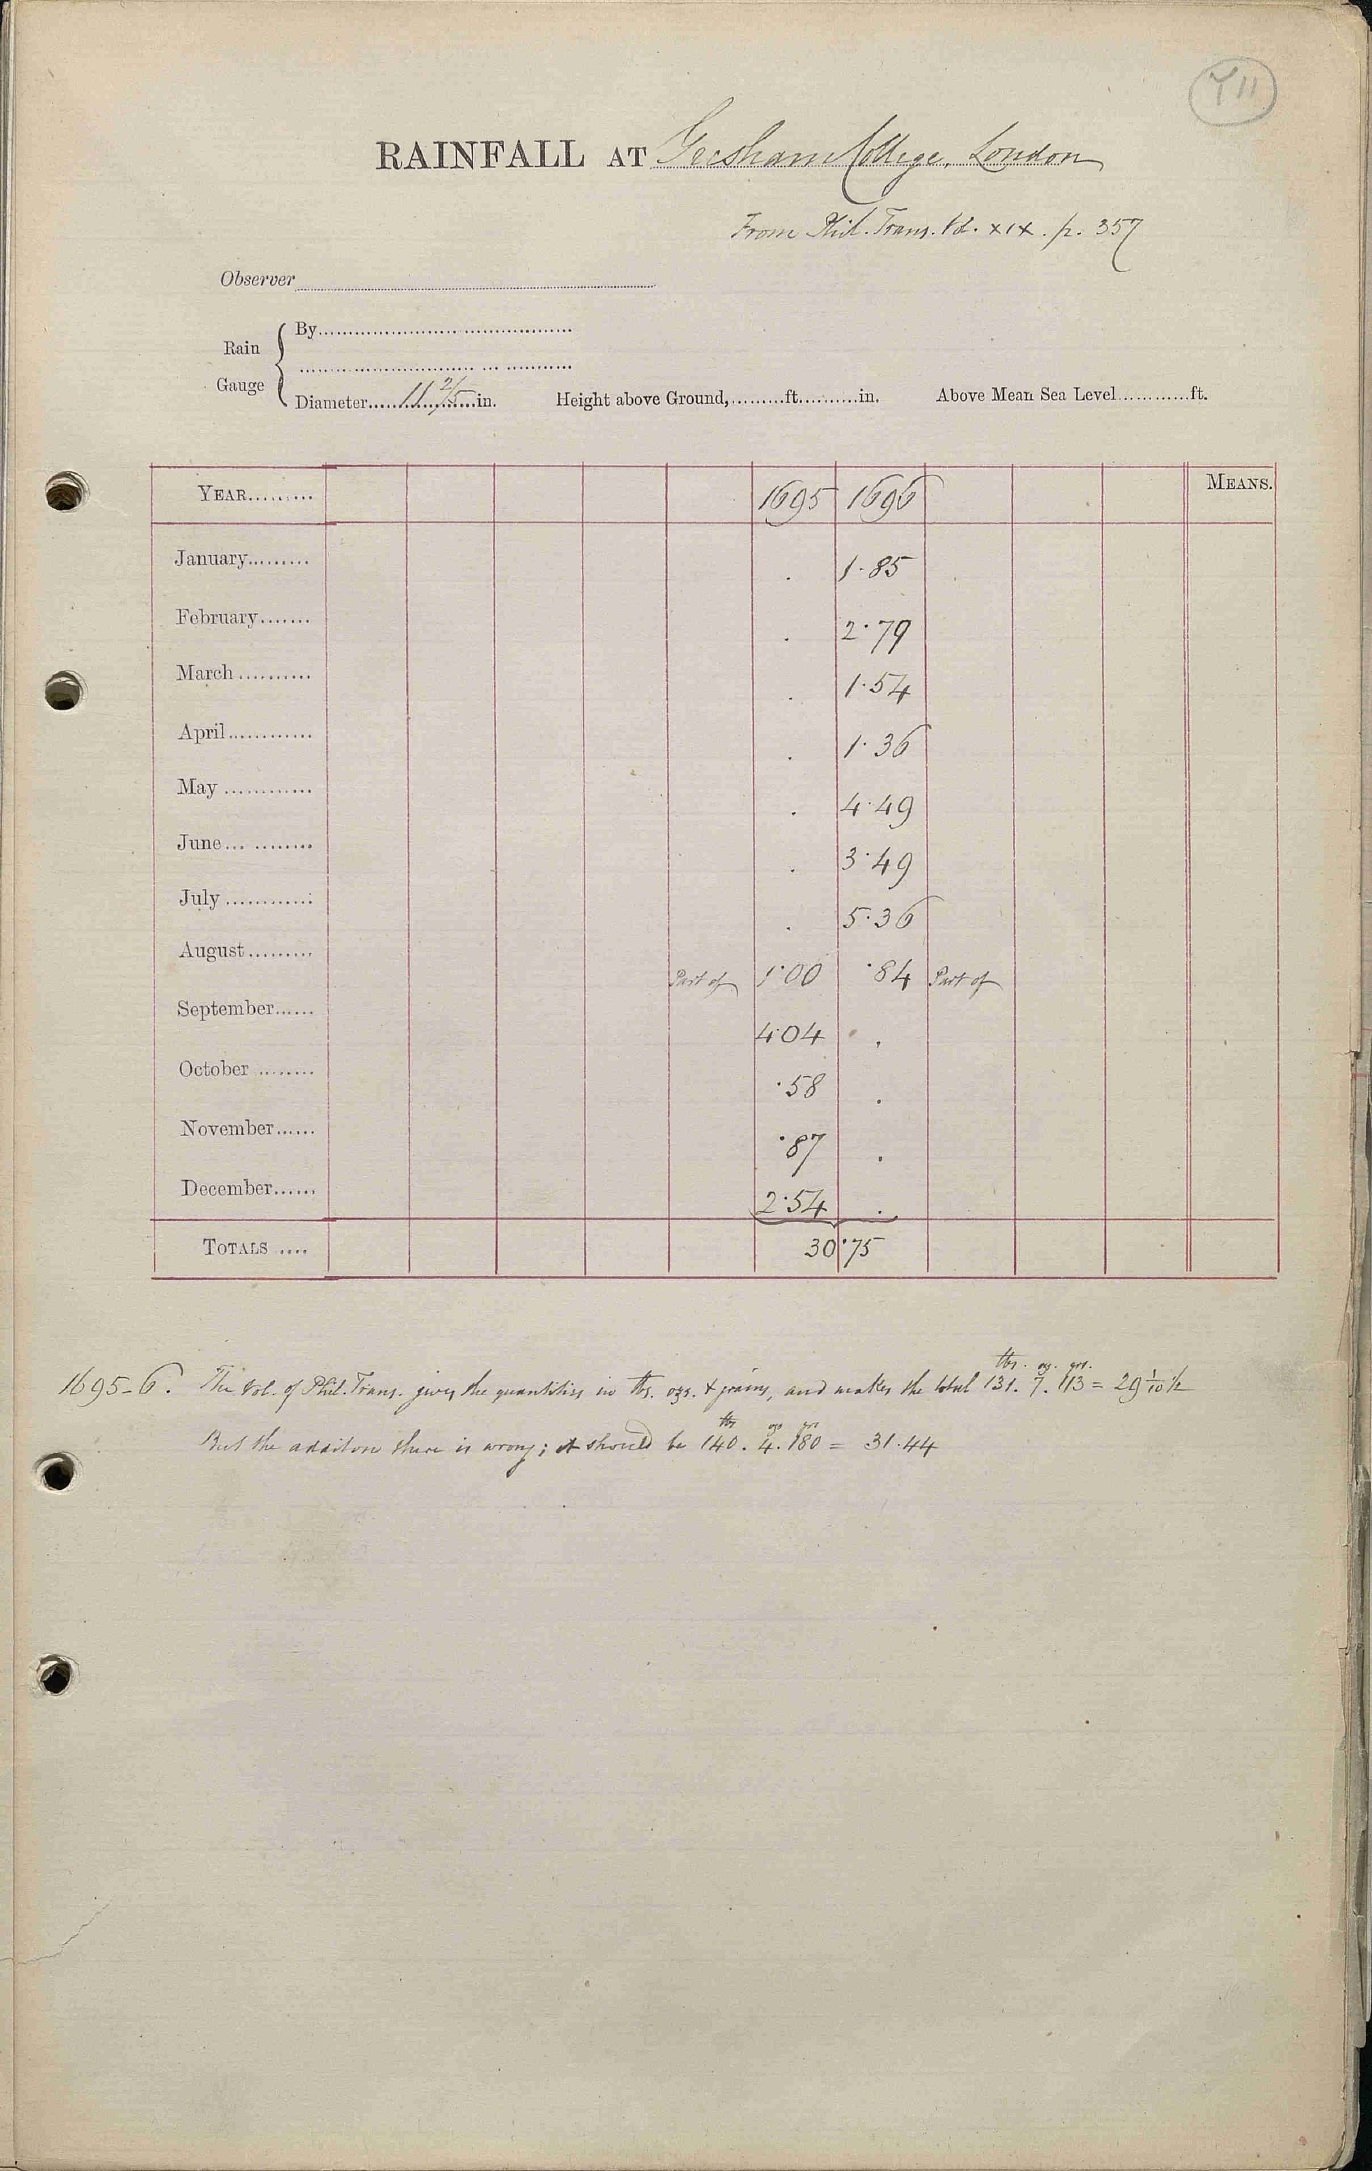 Y11
RAINFALL AT Gresham College, London
From Phil. Trans. Vol. XIX. p. 357
Observer
Rain Gauge
By
Diameter 11 2/5 in. Height above Ground, ft. in. Above Mean Sea Level ft.
YEAR 1695 1696 MEANS.
January . 1.85
February . 2.79
March . 1.54
April . 1.36
May . 4.49
June . 3.49
July . 5.36
August Part of 1.00 .84 Part of
September 4.04 .
October .58 .
November .87 .
December 2.54 .
TOTALS 30.75
lbs. oz. grs.
1695-6. The Vol. of Phil. Trans. gives the quantities in lbs. ozs. & grains, and makes the total 131. 7. 113 = 29 1/10 ½
lbs ozs grs
But the addition there is wrong; it should be 140. 4. 180 = 31.44